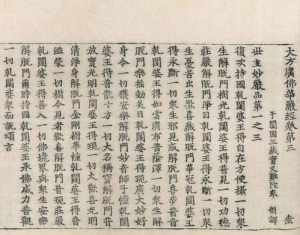 大方廣佛華嚴經卷第三 壹
于闐國三藏實叉難陀奉 制譯
世主妙嚴品第一之三
復次持國乾闥婆王得自在方便攝一切眾
生解脫門樹光乾闥婆王得普見一切功德
莊嚴解脫門淨目乾闥婆王得永斷一切眾
生憂苦出生歡喜藏解脫門華冠乾闥婆王
得永斷一切眾生邪見惑解脫門喜步普音
乾闥婆王得如雲廣布普蔭澤一切眾生解
脫門樂搖動美目乾闥婆王得現廣大妙好
身令一切獲安樂解脫門妙音師子幢乾闥
婆王得普散十方一切大名稱寶解脫門普
放寶光明乾闥婆王得現一切大歡喜光明
清淨身解脫門金剛樹華幢乾闥婆王得普
滋榮一切樹令見者歡喜解脫門普現莊嚴
乾闥婆王得善入一切佛境界與眾生安樂
解脫門爾時持國乾闥婆王承佛威力普觀
一切乾闥婆眾而說頌言